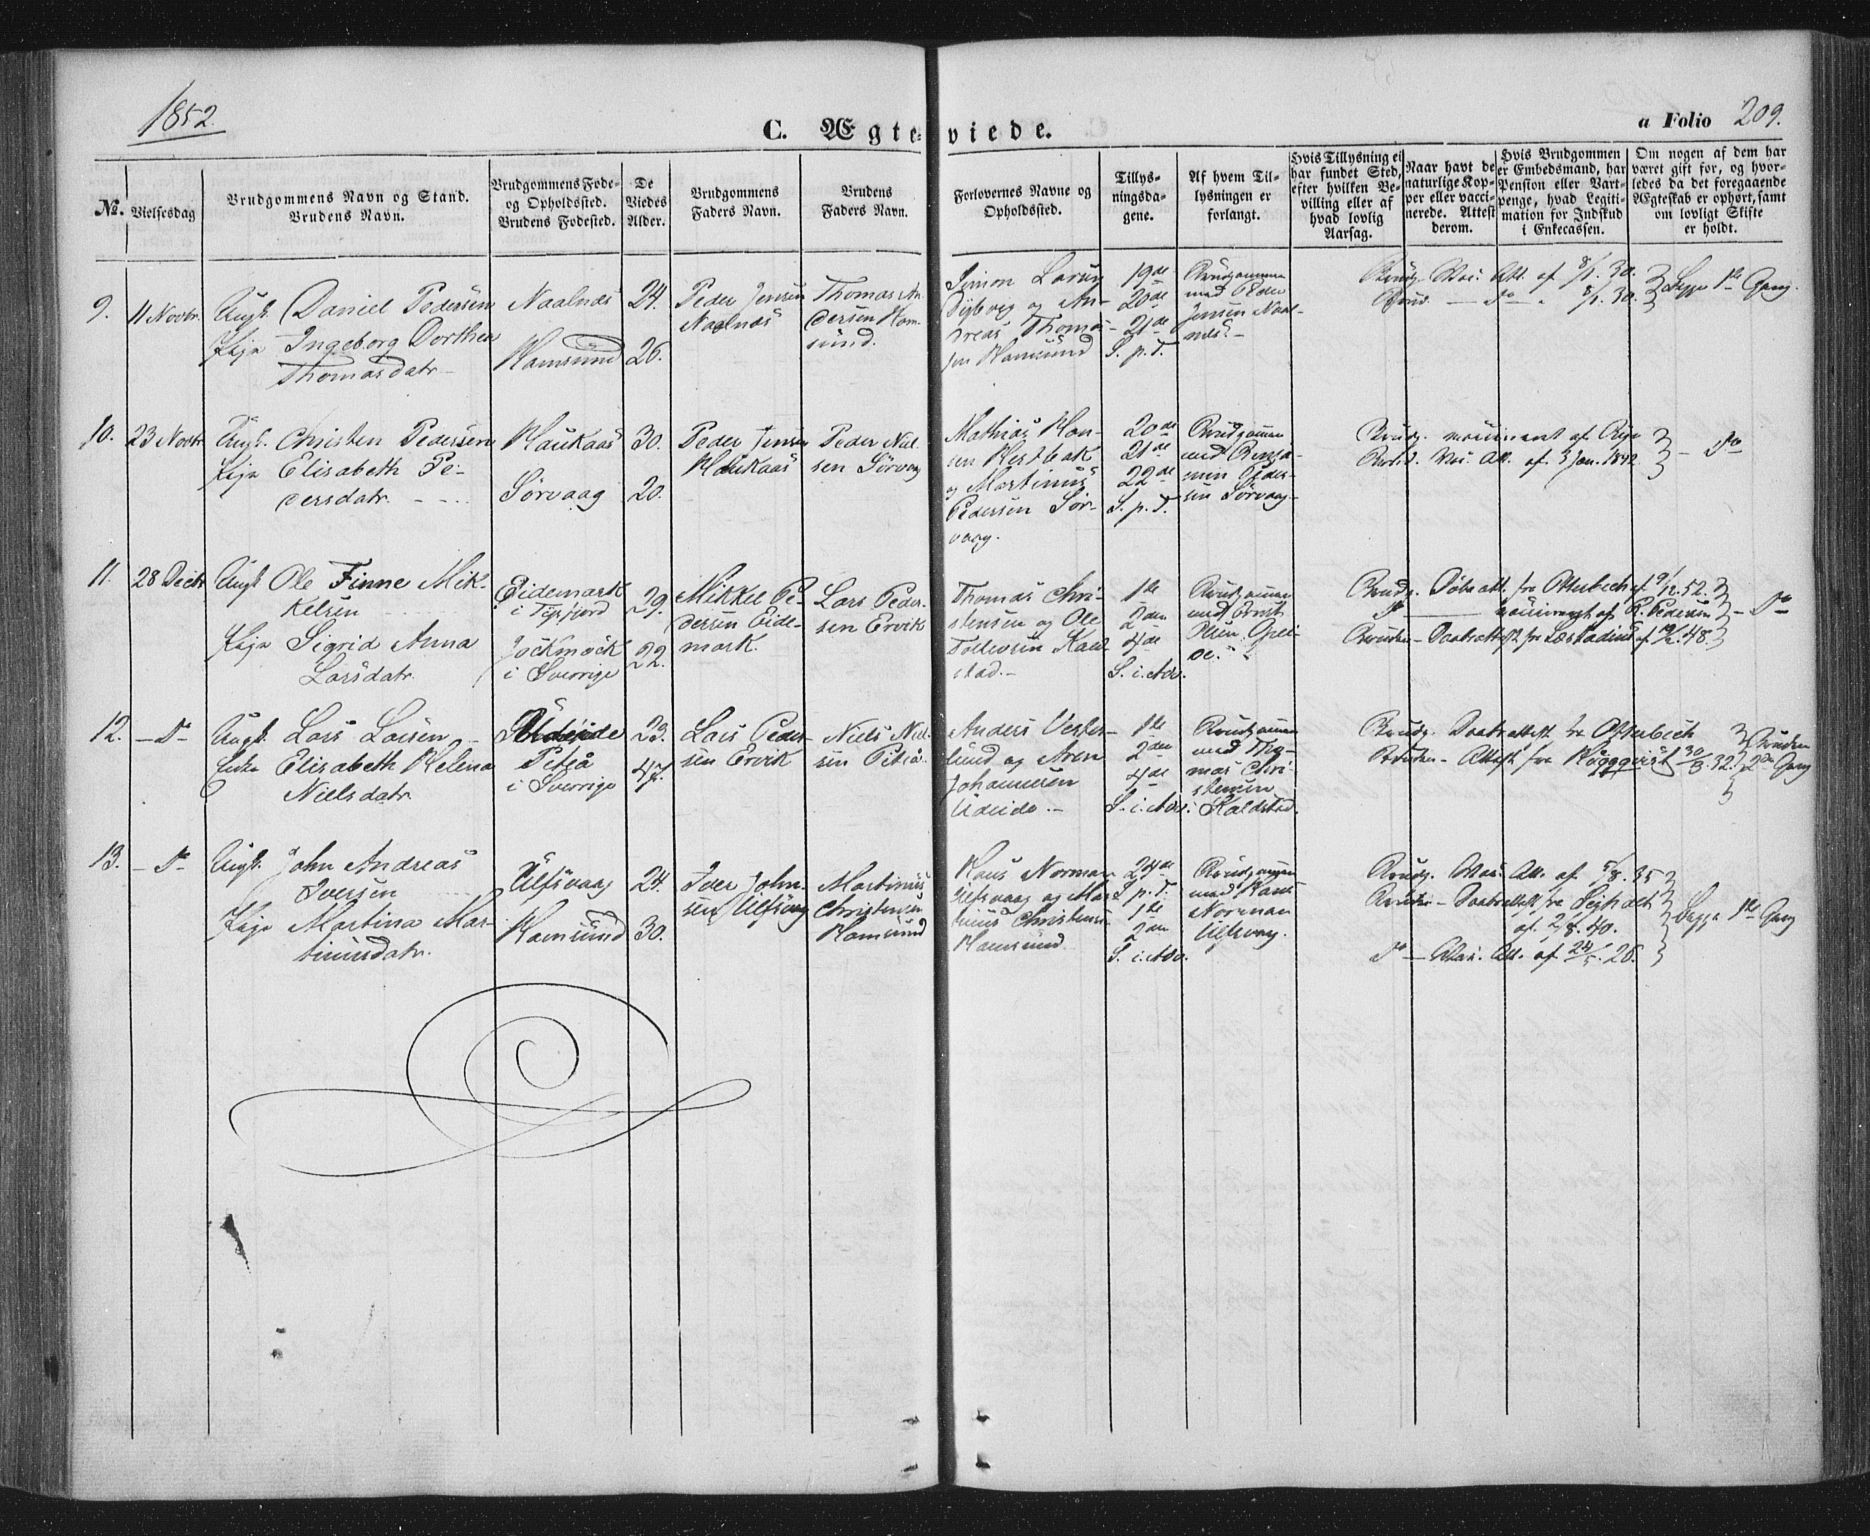 1852.
C. Ægteviede.
a Folio 209.
No. Vielsesdag
Brudgommens Navn og Stand. Brudens Navn.
Brudgommens Føde- og Opholdssted. Brudens Fødested.
De Viedes Alder.
Brudgommens Faders Navn.
Brudens Faders Navn.
Forlovernes Navne og Opholdssted.
Tillysningsdagene.
Af hvem Tillysningen er forlangt.
Hvis Tillysning ei har fundet Sted, efter hvilken Bevilling eller af hvad lovlig Aarsag.
Naar havt de naturlige Kopper eller vaccinerede. Attest derom.
Hvis Brudgommen er Embedsmand, har Pension eller Vartpenge, hvad Legitimation for Indskud i Enkecassen.
Om nogen af dem har været gift før, og hvorledes da det foregaaende Ægteskab er ophørt, samt om lovligt Skifte er holdt.
9. 11 Novbr.
Ungk. Daniel Pedersen
Pige Ingeborg Dorthea
Thomasdatr
Naalnæs
Hamsund
24.
26.
Peder Jensen
Naalnæs
Thomas An-
dersen Ham-
sund.
Simon Larsen
Dybvig og An-
dreas Thoma-
sen Hamsund
19de
20de
21de
S. p. T.
Brudgommen
med Peder
Jensen Naal-
næs.
Brudg. Vac. Att. af 8/1. 30.
Brud. — do 8/1. 30.
Begge 1ste Gang.
10. 23 Novbr
Ungk. Christen Pedersen
Pige Elisabeth Pe-
dersdatr.
Haukaas
Sørvaag
30.
20.
Peder Jensen
Haukaas
Peder Niel-
sen Sørvaag
Mathias Han-
sen Hestbak
og Martinus
Pedersen Sør-
vaag.
20de
21de
22de
S. p. T.
Brudgommen
med Benja-
min Peder-
sen Sørvaag
Brudg. vaccineret af
Brud. Vac. Att. af 3 Jan. 1842.
— Do
11. 28 Decbr
Ungk. Ole Finne Mik-
kelsen
Pige Sigrid Anna
Larsdatr.
Eidemark
i Tysfjord
Jockmock
i Sverrige
29.
22.
Mikkel Pe-
dersen Eide-
mark.
Lars Peder-
sen Ervik
Thomas Chri-
stensen og Ole
Tollevsen Kald-
stad.
1ste
2den
4de
S. i. Adv.
Brudgommen
med
Olsen
Brudg. Døbeatt. fra Ofte 9/12. 52.
Do — vaccineret af R. Pedersen
Bruden — Daabsattest fra Læstadius af 48.
— Do
12. — Do
Ungk. Lars Larsen
Enke Elisabeth Helena
Nielsdatr
Piteå
i Sverrige
23.
47.
Lars Peder-
sen Ervik
Niels Niel-
sen Piteå.
Anders Vester-
lund og Aren
Johannesen
Udeide.
1ste
2den
4de
S. i. Adv.
Brudgommen
med Tho-
mas Chri-
stensen
Kaldstad.
Brudg. Daabsattest fra
Bruden — Attest fra Häggqvist 30/8. 32.
Bruden
2den Gang
13. — Do
Ungk. John Andreas
Iversen
Pige Martina Mar-
tinusdatr.
Ulfsvaag
Hamsund
24.
30.
Iver John-
sen Ulfsvaag
Martinus
Christensen
Hamsund
Hans Norman
Ulfsvaag og Mar-
tinus Christensen
Hamsund.
24de
S. p. T.
1ste
2den
S. i. Adv.
Brudgommen
med Hans
Norman
Ulfsvaag.
Brudg. Vac. Att. af 5/8. 35
Bruden — Daabsattest fra
af 2/8. 40.
Do — Vac. Att. af 24/5. 26.
Begge 1ste Gang